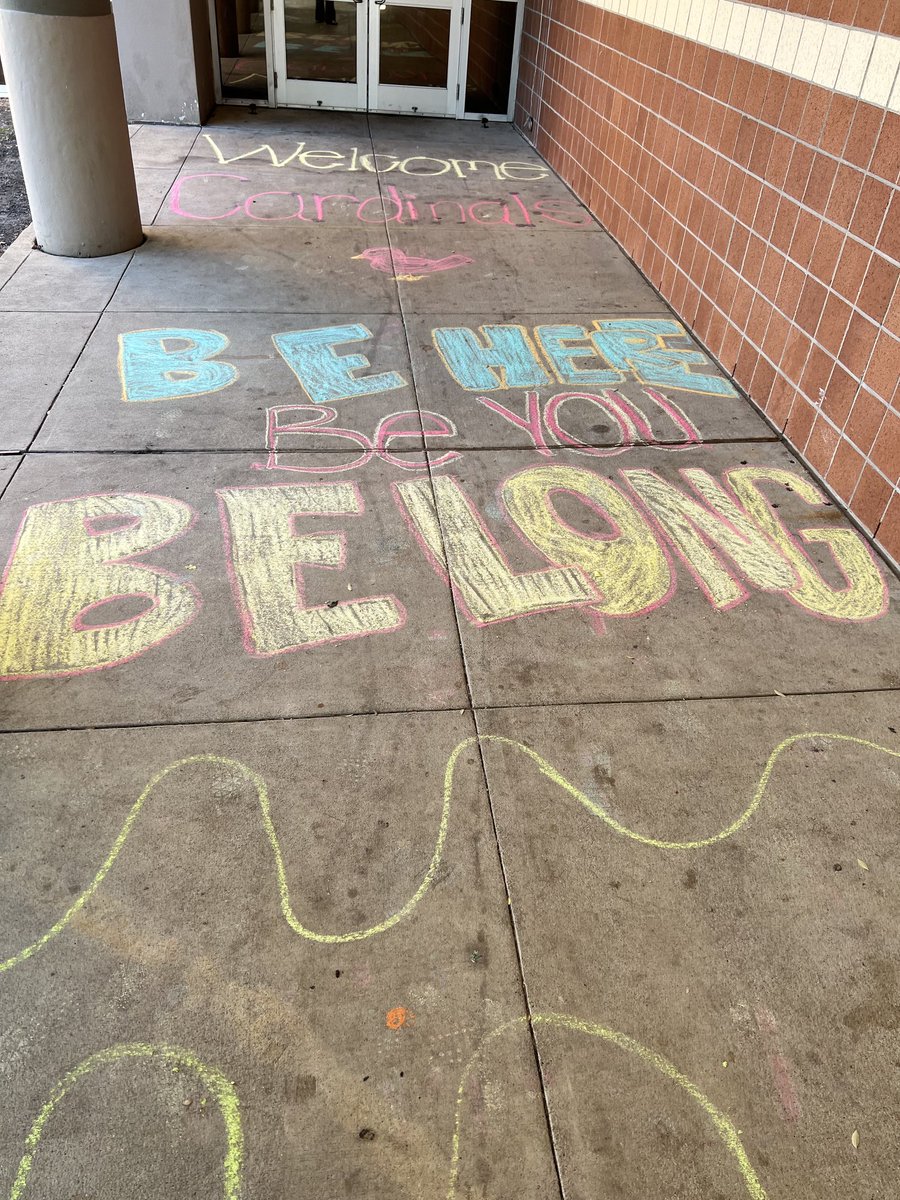 Welcome
Cardinals
BE HERE
Be YOU
BELONG